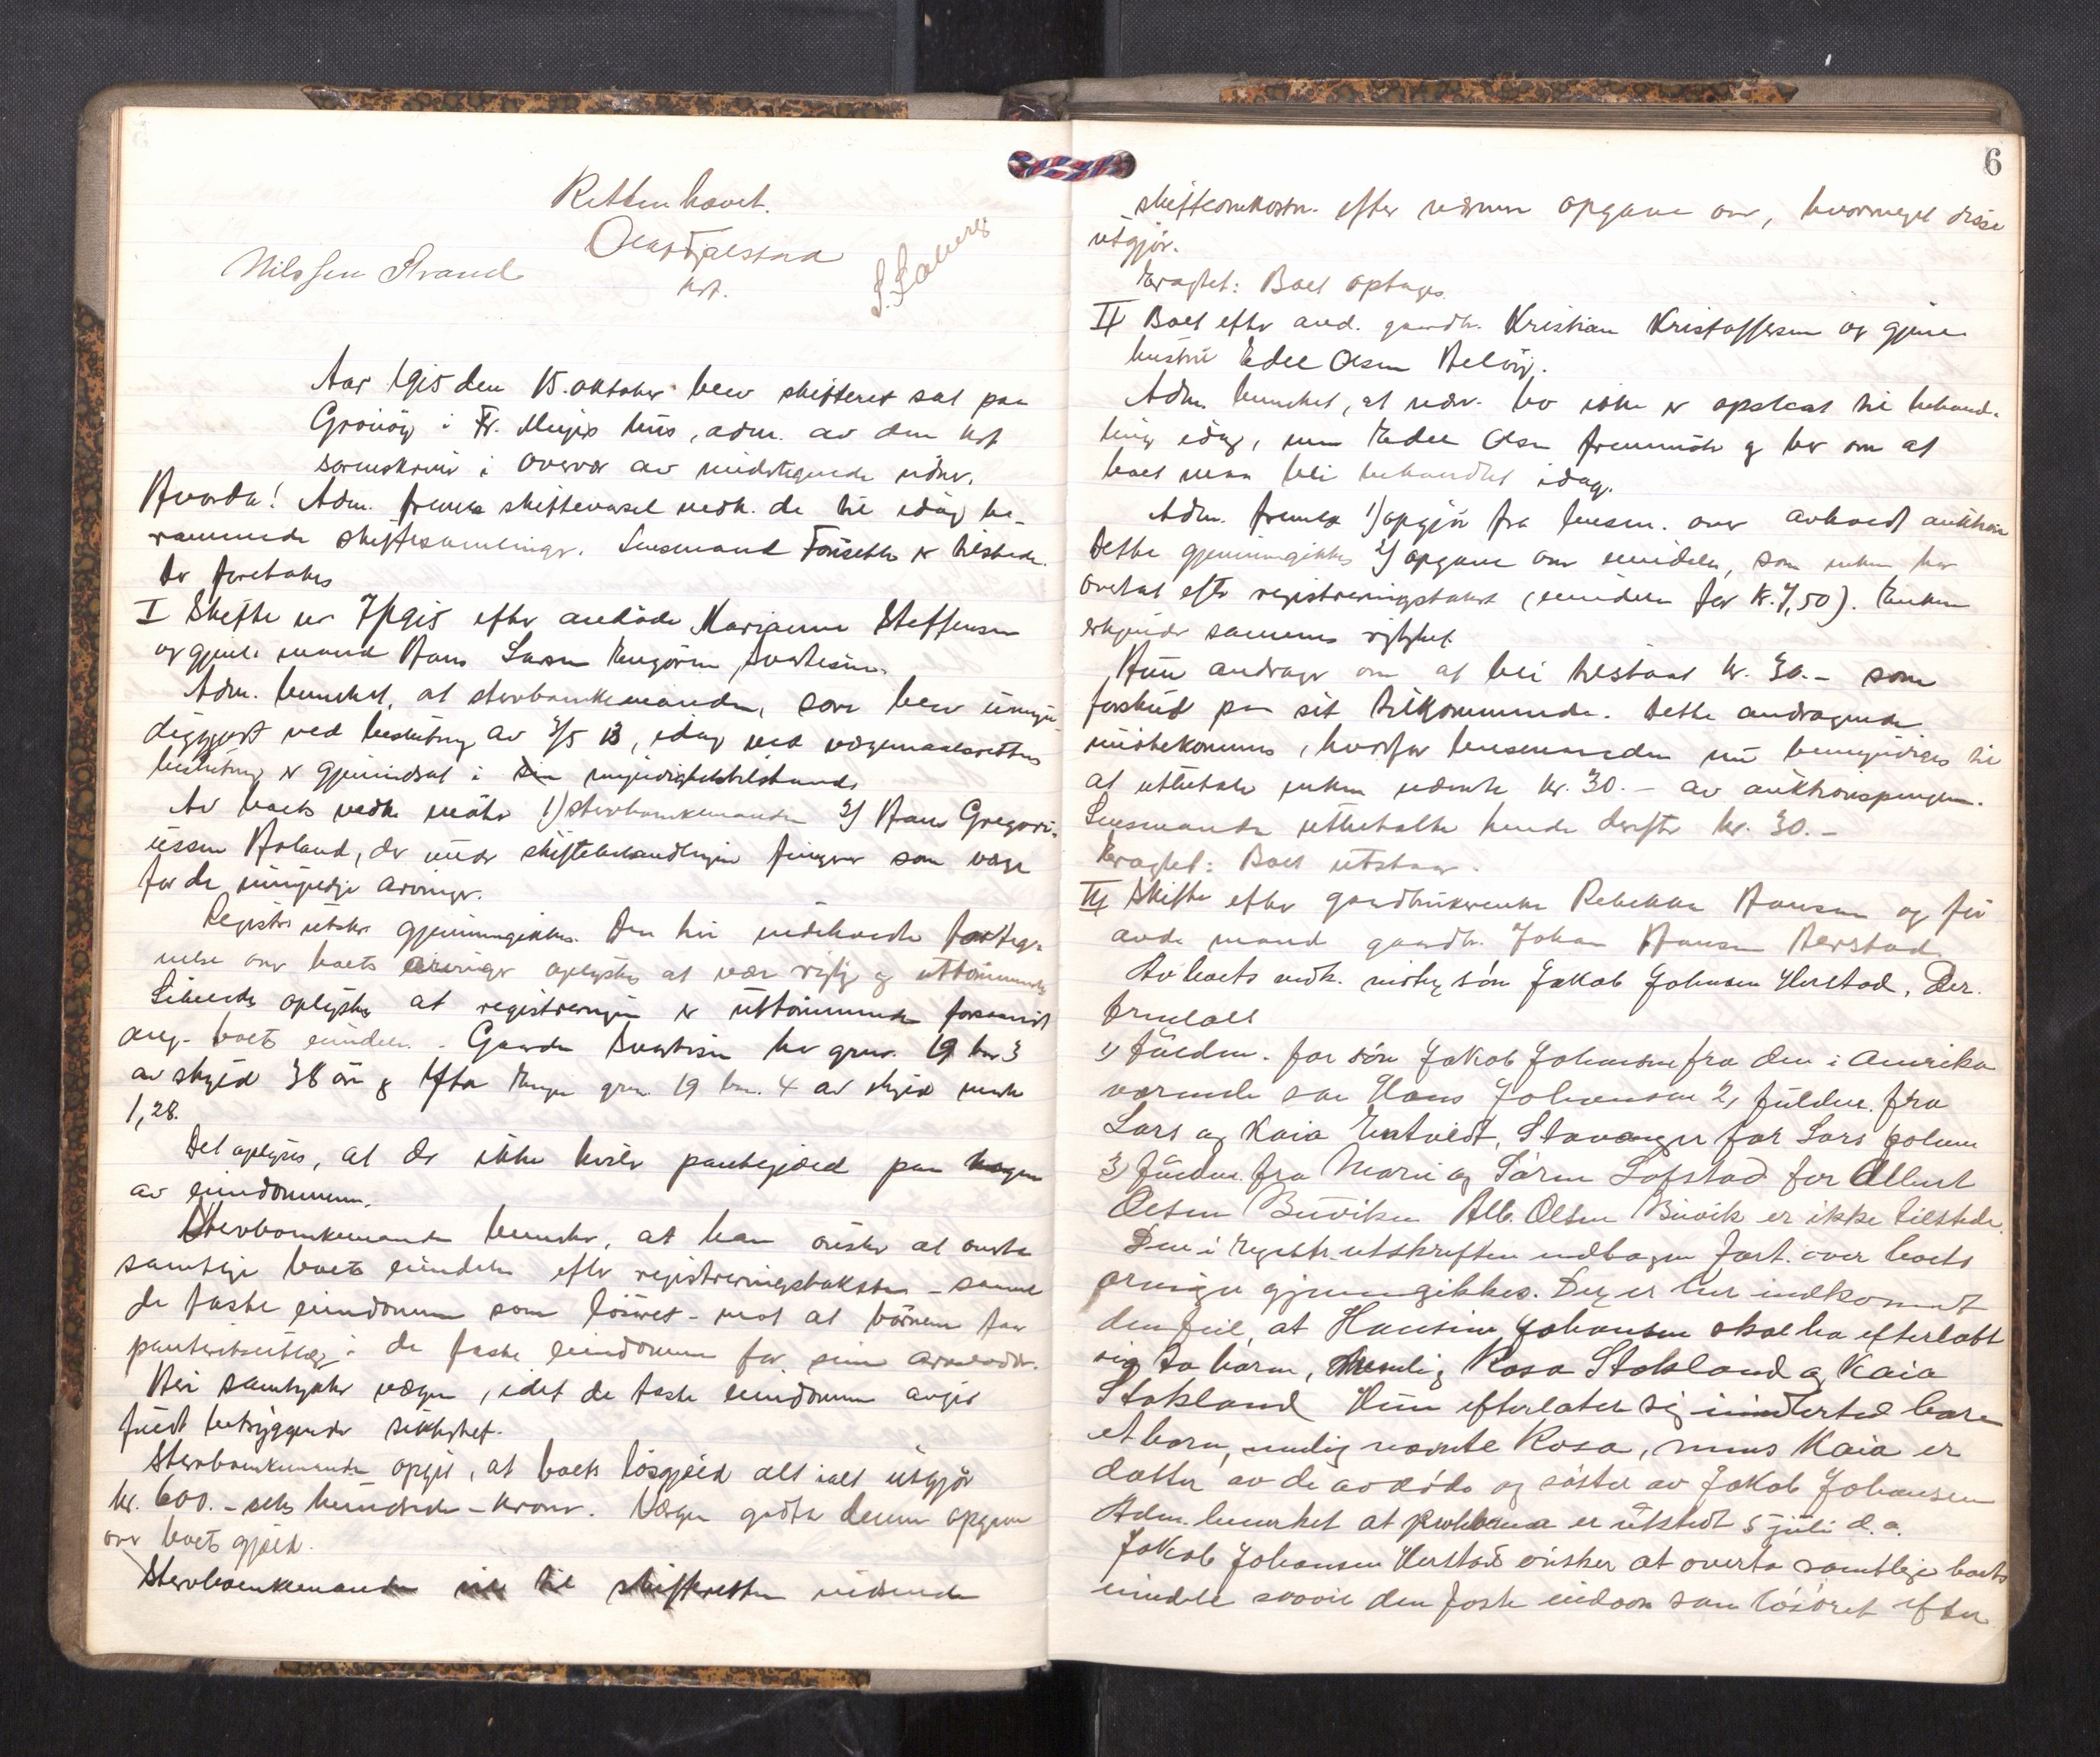 Retten hævet.
Olaf Fjalstad
kst.
Nils Jen Strand
S. Salnes
Aar 1915 den 15. oktober blev skifteret sat paa
Gronög i Fr. Meyers hus, adm. av den kst
sorenskriver i overvær av undertegnede vidner.
Hvorda! Adm. fremla skiftevarsel vedk. de til idag be-
rammede skiftesamlinger. Lensmand er tilstede.
Der foretokes
I Skifte nr 7/1915 efter avdöde Marianne Steffensen
og gjenl. mand Hans Larsen
Adm. bemerket, at sterbonkemanden, som blev umyn-
diggjort ved beslutning av 3/5 13, idag ved vergemaalsrettens
beslutning er gjenindsat i sin myndighetstilstand.
Av boets vedk. møter 1) sterbonkemanden 2) Hans Gregori-
ussen Roland, der under skiftebehandlingen fungerer som verge
for de umyndige arvinger.
Registr. utskr. gjennemgikkes. Den heri indeholdte forteg-
nelse over boets arvinger oplystes at være rigtig og uttømmende
Likeledes oplystes at registreringen er uttømmende forsaavidt
ang. boets eiendele. Gaarden har gnr. 19 bnr 3
av skyld 38 øre og gnr. 19 bnr. 4 av skyld mark
1,28.
Det oplyses, at der ikke hviler pantegjæld paa nogen
av eiendommene.
Sterbonkemanden bemerker, at han ønsker at overta
samtlige boets eiendele efter registreringstaksten - saavel
de faste eiendomme som løsøret - mot at børnene faar
panteretsutlæg i de faste eiendomme for sine arvelodder.
Heri samtykker vergen, idet de faste eiendomme avgir
fuldt betryggende sikkerhet.
Sterbonkemanden opgir, at boets løsgjæld alt ialt utgjør
kr. 600.- seks hundrede - kroner. Vergen godtar denne opgave
over boets gjæld.
Sterbonkemanden vil til skifteretten indsende
6
skifteomkostn. efter nærmere opgave om, hvormeget disse
utgjør.
Eragtet: Boet optages.
II Boet efter avd. gaardbr. Kristian Kristoffersen og gjenl.
hustru Edel Olsen
Adm. bemerket, at nærv. bo ikke er opslaat til behand-
ling idag, men Edel Olsen fremmøter og ber om at
boet maa bli behandlet idag.
Adm. fremla 1) opgjør fra lensm. over avholdt auktion
Dette gjennemgikkes 2) opgave over eiendele, som enken har
overtat efter registreringstakst (eiendele for kr. 7,50). Enken
erkjender sammes rigtighet.
Hun andrager om at bli tilstaat kr. 30.- som
forskud paa sit tilkommende. Dette andragende
imøtekommes, hvorfor lensmanden nu bemyndiges til
at utbetale enken nævnte kr. 30.- av auktionspengene.
Lensmanden utbetalte hende derefter kr. 30.-
Eragtet: Boet utstaar.
III Skifte efter gaardbrukerenke Rebekka Hansen og før
avdøde mand gaardbr. Johan Hansen Herstad
Av boets vedk. møter søn Jakob Johansen Herstad. Der.
fremla
1) fuldm. for søn Jakob Johansen fra den i Amerika
værende søn Hans Johansen 2) fuldm. fra
Lars og Kaia Stavanger for Lars
3) fuldm. fra Marie og Søren Lofstad for Albert
Olsen Buviken Alb. Olsen Buvik er ikke tilstede.
Den i registr. utskriften indtagne fort. over boets
arvinger gjennemgikkes. Der er her indkommet
den feil, at Hansine Johansen skal ha efterlatt
sig to børn, nemlig Rosa Stokland og Kaia
Stokland Hun efterlater sig imidlertid bare
et barn, nemlig nævnte Rosa, mens Kaia er
datter av de avdøde og søster av Jakob Johansen
Adm. bemerket at proklama er utstedt 5 juli d.a.
Jakob Johansen Herstad ønsker at overta samtlige boets
eiendele saavel den faste eiendom som løsøret efter